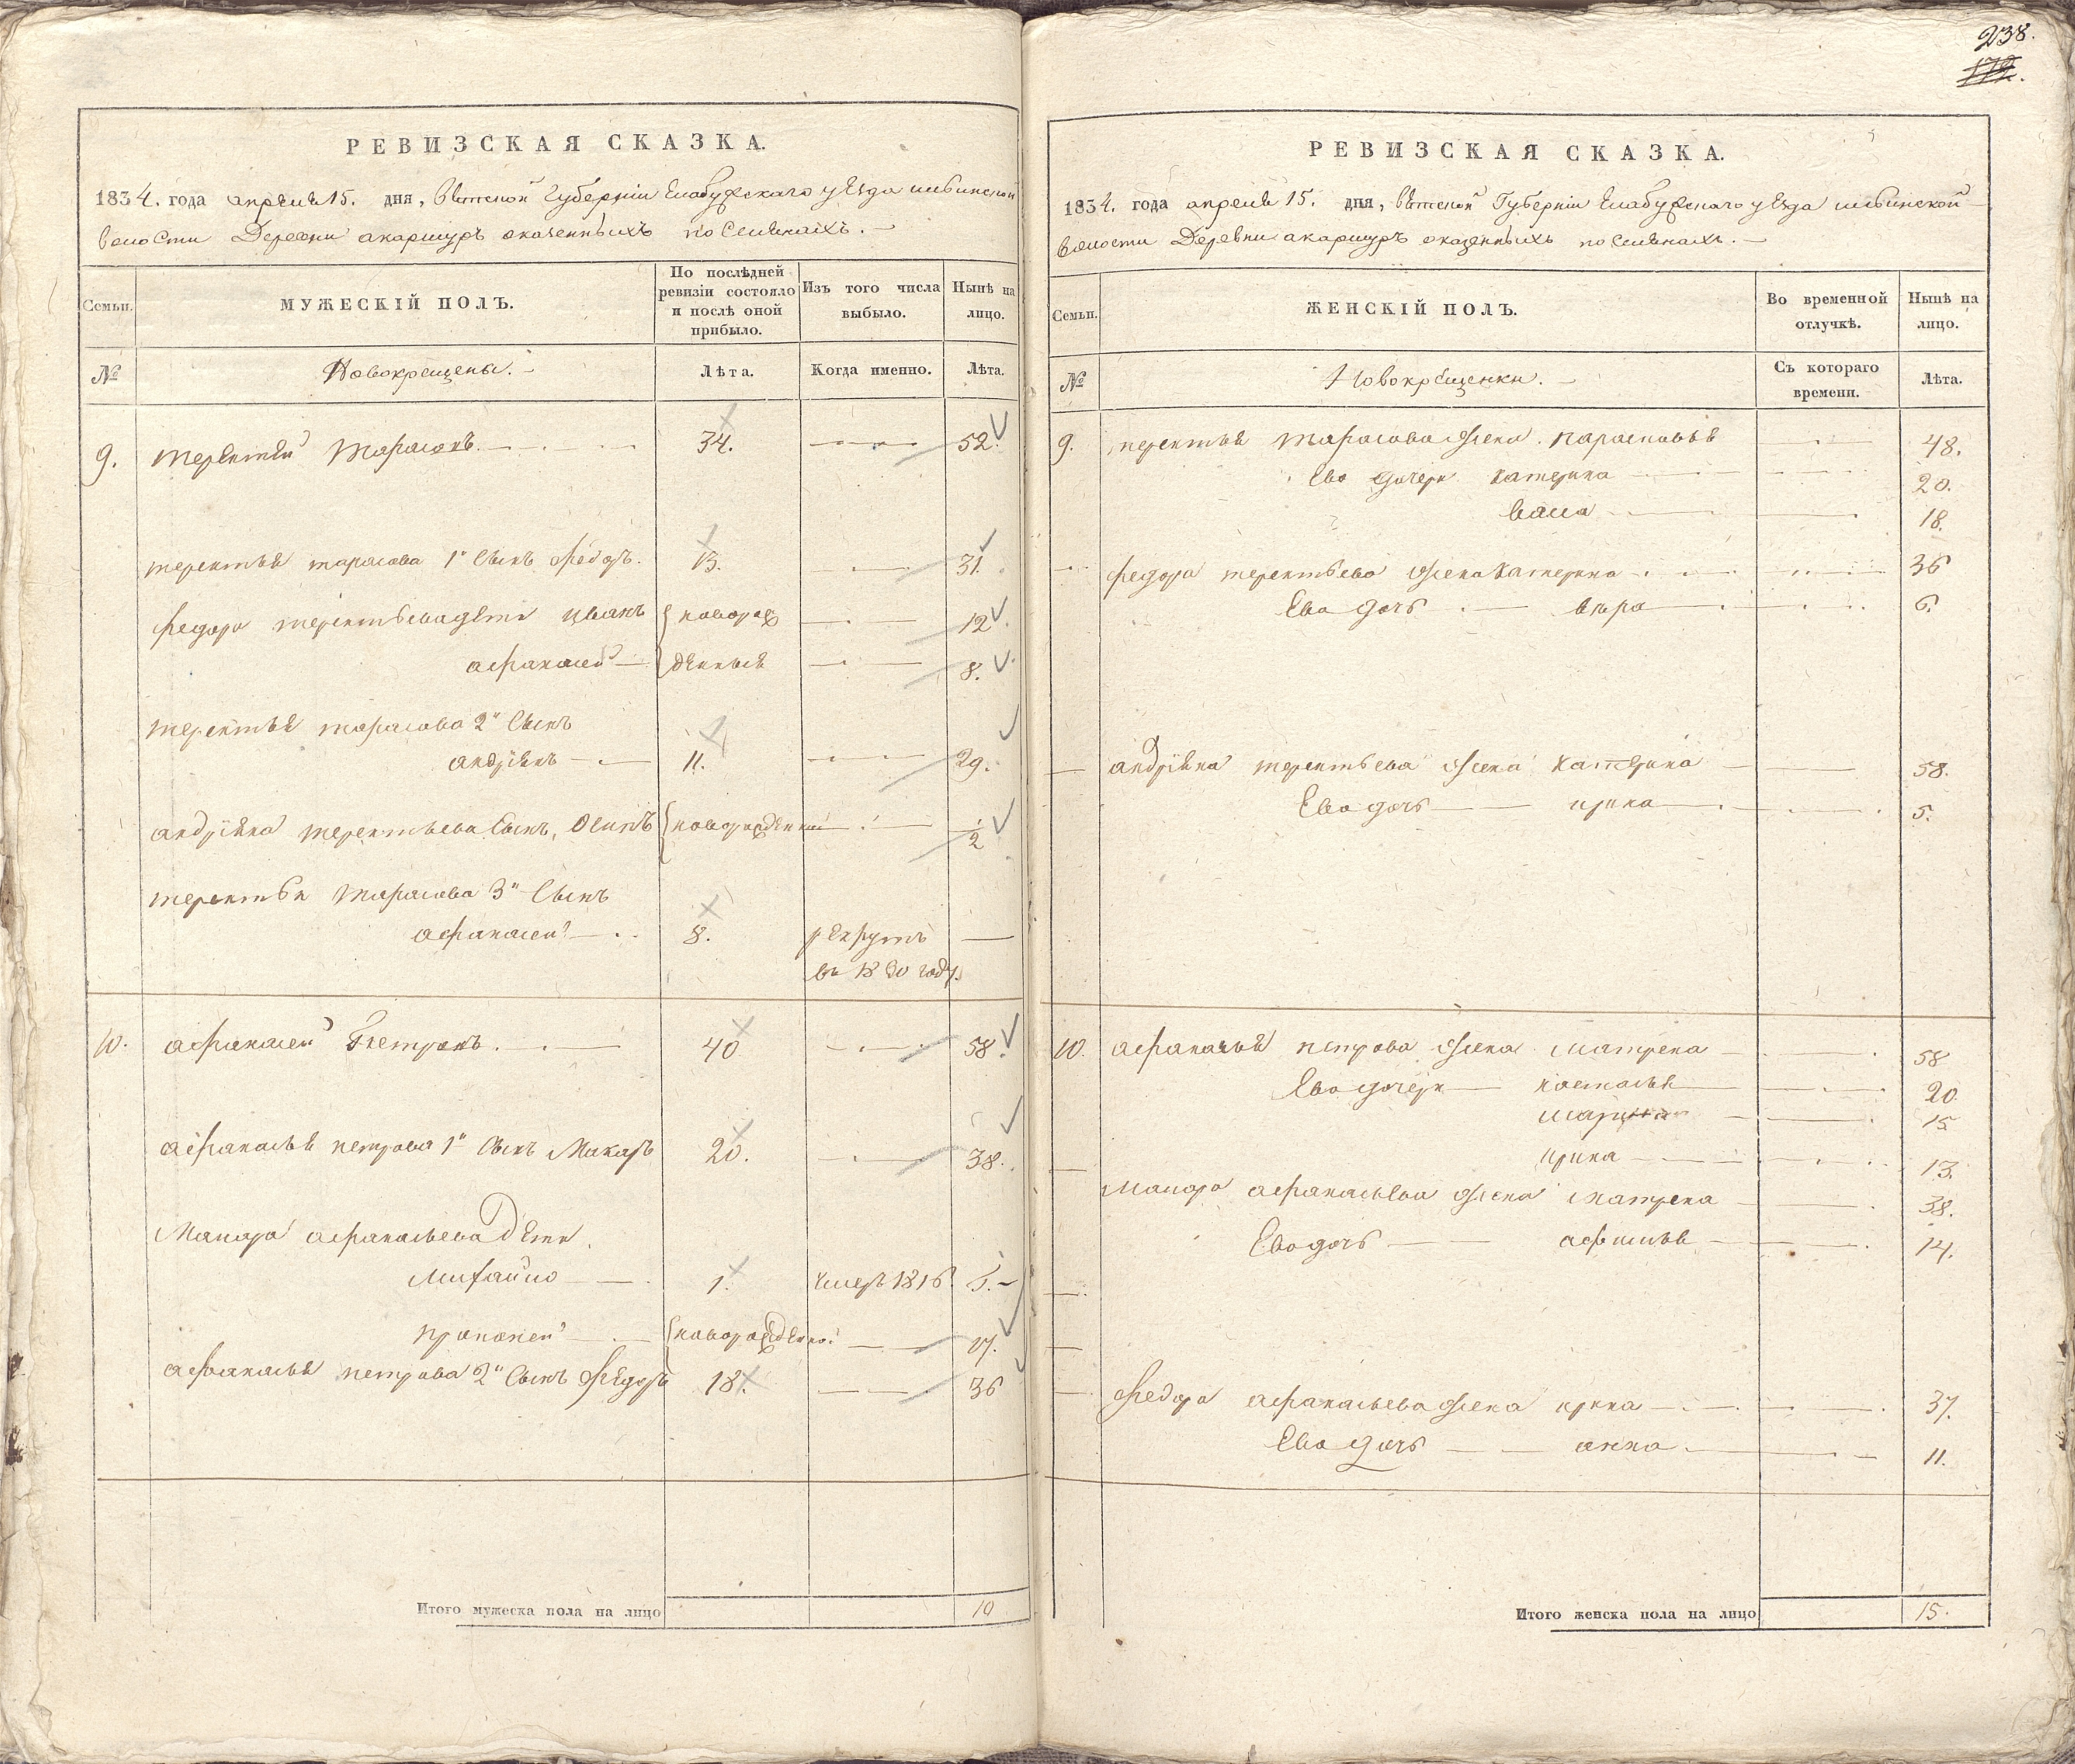 238.
РЕВИЗСКАЯ СКАЗКА.
1834. года апреля 15. дня, Вятской Губернии Елабужскаго уезда
волости Деревни акаршуръ
Семьи.
МУЖЕСКІЙ ПОЛЪ.
По послѣдней ревизіи состояло и послѣ оной прибыло.
Изъ того числа выбыло.
Нынѣ на лицо.
№
Новокрещены.
Лѣта.
Когда именно.
Лѣта.
9. терентей тарасовъ. 34. 52.
терентья тарасова 1й сынъ Федоръ. 13. 31.
федора терентьева дети иванъ новорож 12
афанасей денныя 8.
терентья тарасова 2й сынъ
андріянъ 11. 29.
андріяна терентьева сынъ, Осипъ новорожденный 1/2
терентья тарасова 3й сынъ
афанасей 8. рекрутъ
въ 1830 году.
10. афанасей Петровъ. 40 58.
афанасья петрова 1й сынъ Макаръ 20. 38.
Макара афанасьева Дети.
Михайло 1. умеръ 1816
прокопей новорожденной 17.
афанасья петрова 2й сынъ Федоръ 18. 36
Итого мужеска пола на лицо 10
РЕВИЗСКАЯ СКАЗКА.
1834. года апреля 15. дня, Вятской Губернии Елабужскаго уезда
волости Деревни акаршуръ
Семьи.
ЖЕНСКІЙ ПОЛЪ.
Во временной отлучкѣ.
Нынѣ на лицо.
№
Новокрещенки.
Съ котораго времени.
Лѣта.
9. терентья тарасова жена парасковья 48.
Ево дочери катерина 20.
18.
федора терентьева жена катерина 36
Ево дочь вера 6.
андріяна терентьева жена катерина 58.
Ево дочь ирина 5.
10. афанасья петрова жена матрена 58
Ево дочери настасья 20
15
ирина 13.
макара афанасьева жена матрена 38.
Ево дочь афимья 14.
Федора афанасьева жена ирина 37.
Ево дочь анна 11.
Итого женска пола на лицо 15.